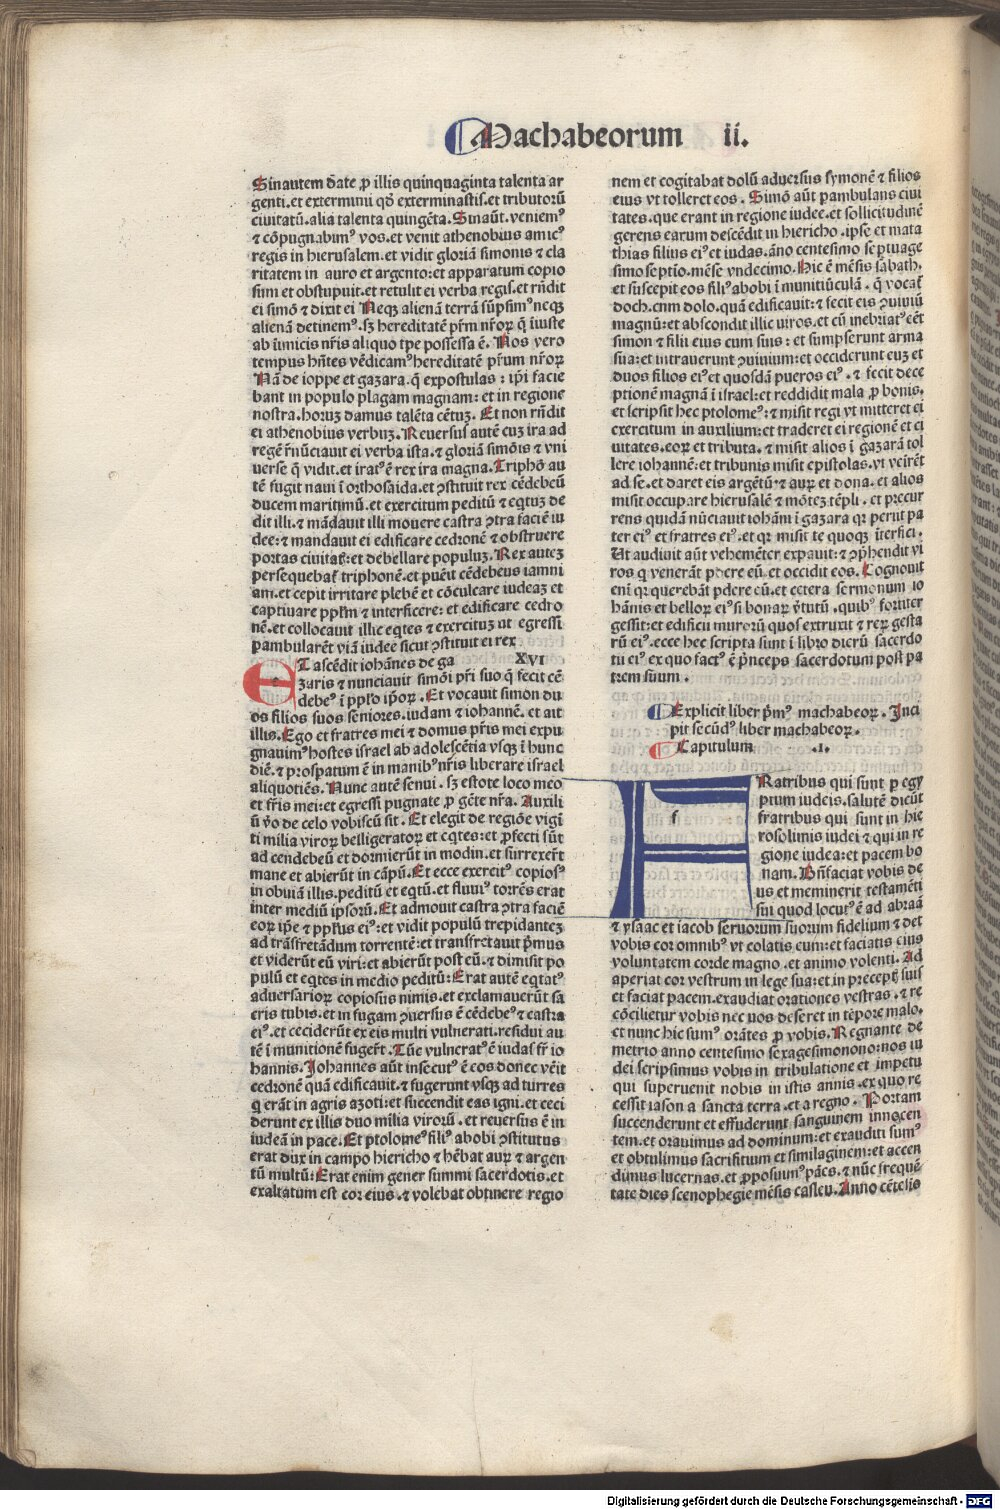 Machabeorum ii.
Sinautem date ꝓ illis quinquaginta talenta ar
genti.et exterminii qd̄ exterminastis.et tributorū
ciuitatū.alia talenta quingēta.Sinaūt.veniemꝰ
⁊ cōpugnabimꝰ vos.et venit athenobius amicꝰ
regis in hierusalem.et vidit gloriā simonis ⁊ cla
ritatem in auro et argento:et apparatum copio
sum et obstupuit.et retulit ei verba regis.et rn̄dit
ei simō ⁊ dixit ei Neqꝫ alienā terrā sūpsimꝰneqꝫ
alienā detinemꝰ.sꝫ hereditatē pr̄m nr̄oꝝ q̄ iiuste
ab īimicis nr̄is aliquo tpe possessa ē. Nos vero
tempus hn̄tes vēdicamꝰhereditatē pr̄um nr̄oꝝ
Nā de ioppe et gazara.q̄ expostulas : ip̄i facie
bant in populo plagam magnam: et in regione
nostra.hoꝝ damus talēta cētuꝫ. Et non rn̄dit
ei athenobius verbuꝫ.Reuersus autē cuꝫ ira ad
regē r̄nūciauit ei verba ista.⁊ gloriā simōis ⁊ vni
uerse q̄ vidit.et iratꝰē rex ira magna.Triphō au
tē fugit naui ī orthosaida.et ꝯstituit rex cēdebeū
ducem maritimū.et exercitum peditū ⁊ eqtuꝫ de
dit illi.⁊ mādauit illi mouere castra ꝯtra faciē iu
dee:⁊ mandauit ei edificare cedronē ⁊ obstruere
portas ciuitat̄:et debellare populuꝫ.Rex auteꝫ
persequebat̄ triphonē.et puēit cēdebeus iamni
am.et cepit irritare plebē et cōculcare iudeaꝫ et
captiuare ppl̄m ⁊ interficere: et edificare cedro
nē.et collocauit illic eqtes ⁊ exercituꝫ ut egressi
pambularēt viā iudee sicut ꝯstituit ei rex
ET ascēdit iohānes de ga XVI
zaris ⁊ nunciauit simōi pr̄i suo q̄ fecit cē
debeꝰ ī pplo ip̄oꝝ . Et vocauit simon du
os filios suos seniores.iudam ⁊ iohannē.et ait
illis.Ego et fratres mei ⁊ domus pr̄is mei expu
gnauimꝰhostes israel ab adolescētia vsqꝫ ī hunc
diē.⁊ prospatum ē in manibꝰnr̄is liberare israel
aliquotiēs.Nunc autē senui . sꝫ estote loco meo
et fr̄is mei:et egressi pugnate ꝓ gēte nr̄a. Auxili
ū v̄o de celo vobiscū sit . Et elegit de regiōe vigī
ti milia viroꝝ belligeratoꝝ et eqtes:et ꝓfecti sūt
ad cendebeū et dormierūt in modin.et surrexer̄t
mane et abierūt in cāpū.Et ecce exercitꝰ copiosꝰ
in obuiā illis.peditū et eqtū.et fluuiꝰ torrēs erat
inter mediū ipsorū.Et admouit castra ꝯtra faciē
eoꝝ ip̄e ⁊ ppl̄us eiꝰ:et vidit populū trepidanteꝫ
ad trāsfretādum torrentē:et transfretauit p̄mus
et viderūt eū viri:et abierūt post eū.⁊ dimisit po
pulū et eqtes in medio peditū:Erat autē eqtatꝰ
aduersarioꝝ copiosus nimis.et exclamauerūt sa
cris tubis.et in fugam ꝯuersus ē cēdebeꝰ⁊ castra
eiꝰ.et ceciderūt ex eis multi vulnerati.residui au
tē ī munitionē fuger̄t. Tūc vulneratꝰē iudas fr̄ io
hannis.Johannes aūt insecutꝰ ē eos donec vēit
cedronē quā edificauit.⁊ fugerunt vsqꝫ ad turres
q̄ erāt in agris azoti:et succendit eas igni.et ceci
derunt ex illis duo milia virorū . et reuersus ē in
iudeā in pace. Et ptolomeꝰfiliꝰ abobi ꝯstitutus
erat dux in campo hiericho ⁊ hēbat auꝝ ⁊ argen
tū multū:Erat enim gener summi sacerdotis.et
exaltatum est cor eius.⁊ volebat obtinere regio
nem et cogitabat dolū aduersus symonē ⁊ filios
eius vt tolleret eos . Simō aūt pambulans ciui
tates.que erant in regione iudee.et sollicitudinē
gerens earum descēdit in hiericho .ipse et mata
thias filius eiꝰet iudas.āno centesimo septuage
simo septīo.mēse vndecimo.Hic ē mēsis sabath.
et suscepit eos filiꝰabobi ī munitiūculā . q̄ vocat̄
doch.cum dolo.quā edificauit:⁊ fecit eis ꝯuiuiū
magnū:et abscondit illic uiros.et cū inebriatꝰeēt
simon ⁊ filii eius cum sius : et sumpserunt arma
sua:et intrauerunt ꝯuinium:et occiderunt euꝫ et
duos filios eiꝰet quosdā pueros eiꝰ . ⁊ fecit dece
ptionē magnā ī israel:et reddidit mala ꝓ bonis.
et scripsit hec ptolomeꝰ:⁊ misit regi vt mitteret ei
exercitum in auxilium:et traderet ei regionē et ci
uitates.eoꝝ et tributa.⁊ misit alios ī gaȝarā tol
lere iohannē:et tribunis misit epistolas.vt veirēt
ad se.et daret eis argētū.⁊ auꝝ et dona.et alios
misit occupare hierusalē ⁊ mōteꝫ tēpli . et precur
rens quidā nūciauit iohāni ī gazara qꝛ perut pa
ter eiꝰ et fratres eiꝰ.et qꝛ misit te quoqꝫ īterfici.
Ut audiuit aūt vehemēter expauit:⁊ ꝯp̄hendit vi
ros q̄ venerāt pdere eū.et occidit eos. Cognouit
eni qꝛ querebāt pdere eū.et cetera sermonum io
hānis et belloꝝ eiꝰsi bonaꝝ v̄tutū .quibꝰ fortiter
gessit:et edificii muroꝝū quos extruxit ⁊ reꝝ gesta
rū eiꝰ.ecce hec scripta sunt ī libro dierū sacerdo
tu eiꝰex quo factꝰ ē p̄nceps sacerdotum post pa
trem suum .
Explicit liber p̄mꝰ machabeoꝝ. Inci
pit secūdꝰ liber machabeoꝝ.
Capitulum .I.
FRatribus qui sunt p egy
ptum iudeis.salutē dicūt
fratribus qui sunt in hie
rosolimis iudei ⁊ qui in re
gione iudea:et pacem bo
nam. Bn̄faciat vobis de
us et meminerit testamēti
sui quod locutꝰ ē ad abraā
⁊ ysaac et iacob seruorum suorum fidelium ⁊ det
vobis cor omnibꝰ vt colatis eum:et faciatis eius
voluntatem corde magno .et animo volenti. Ad
aperiat cor vestrum in lege sua:et in precept̄ suis
et faciat pacem.exaudiat orationes vestras .⁊ re
cōcilietur vobis nec uos deseret in tēpore malo.
et nunc hic sumꝰ orātes ꝓ vobis. Regnante de
metrio anno centesimo sexagesimonono:nos iu
dei scripsimus vobis in tribulatione et impetu
qui superuenit nobis in istis annis .ex quo re
cessit iason a sancta terra .et a regno . Portam
succenderunt et effuderunt sanguinem innocen
tem.et orauimus ad dominum:et exauditi sumꝰ
et obtulimus sacrificium et similaginem:et accen
dimus lucernas.et ꝓposuimꝰpāes.⁊ nūc frequē
tate dies scenophegie mēsis casleu.Anno cētesis
Digitalisierung gefördert durch die Deutsche Forschungsgemeinschaft - DFG